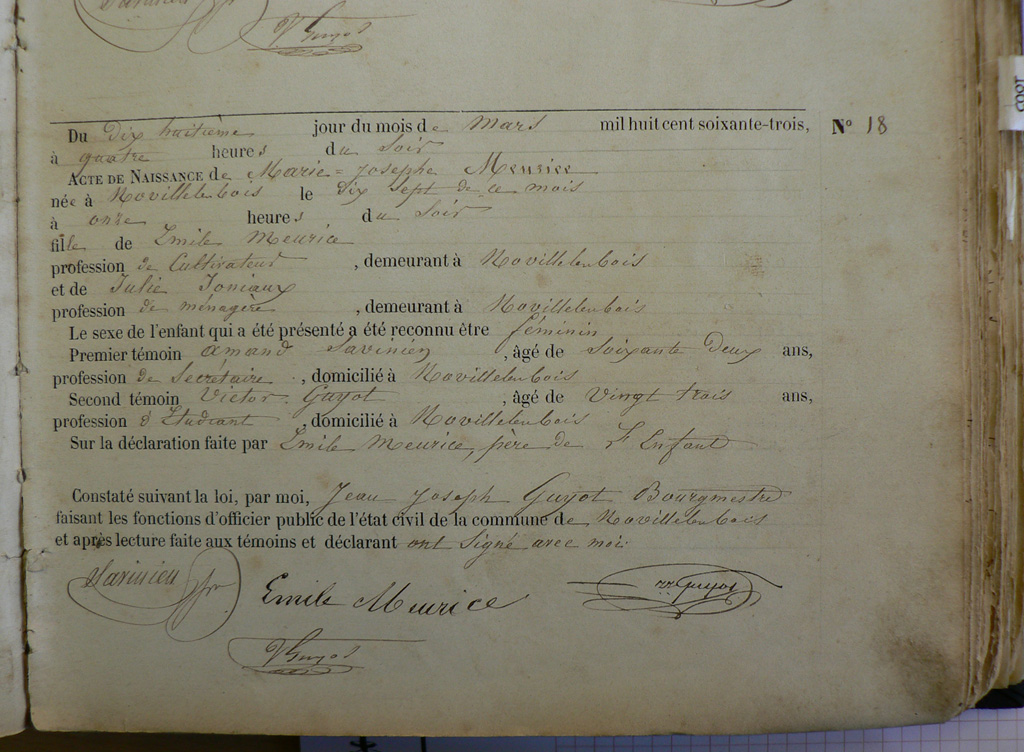 Savinien
V Guyot
Du Dix huitième jour du mois de Mars mil huit cent soixante-trois, N° 18
à quatre heures du Soir
ACTE DE NAISSANCE de Marie-Josephe Meurice
née à Novillelenbois le dix sept de ce mois
à onze heures du Soir
fille de Emile Meurice
profession de Cultivateur, demeurant à Novillelenbois
et de Julie Joniaux
profession de ménagère, demeurant à Novillelenbois
Le sexe de l'enfant qui a été présenté a été reconnu être féminin
Premier témoin Amand Savinien, âgé de Soixante Deux ans,
profession de Secrétaire, domicilié à Novillelenbois
Second témoin Victor Guyot, âgé de Vingt trois ans,
profession d'Etudiant, domicilié à Novillelenbois
Sur la déclaration faite par Emile Meurice, père de l'Enfant
Constaté suivant la loi, par moi, Jean Joseph Guyot Bourgmestre
faisant les fonctions d'officier public de l'état civil de la commune de Novillelenbois
et après lecture faite aux témoins et déclarant ont Signé avec moi.
Savinien
Emile Meurice
Guyot
V Guyot